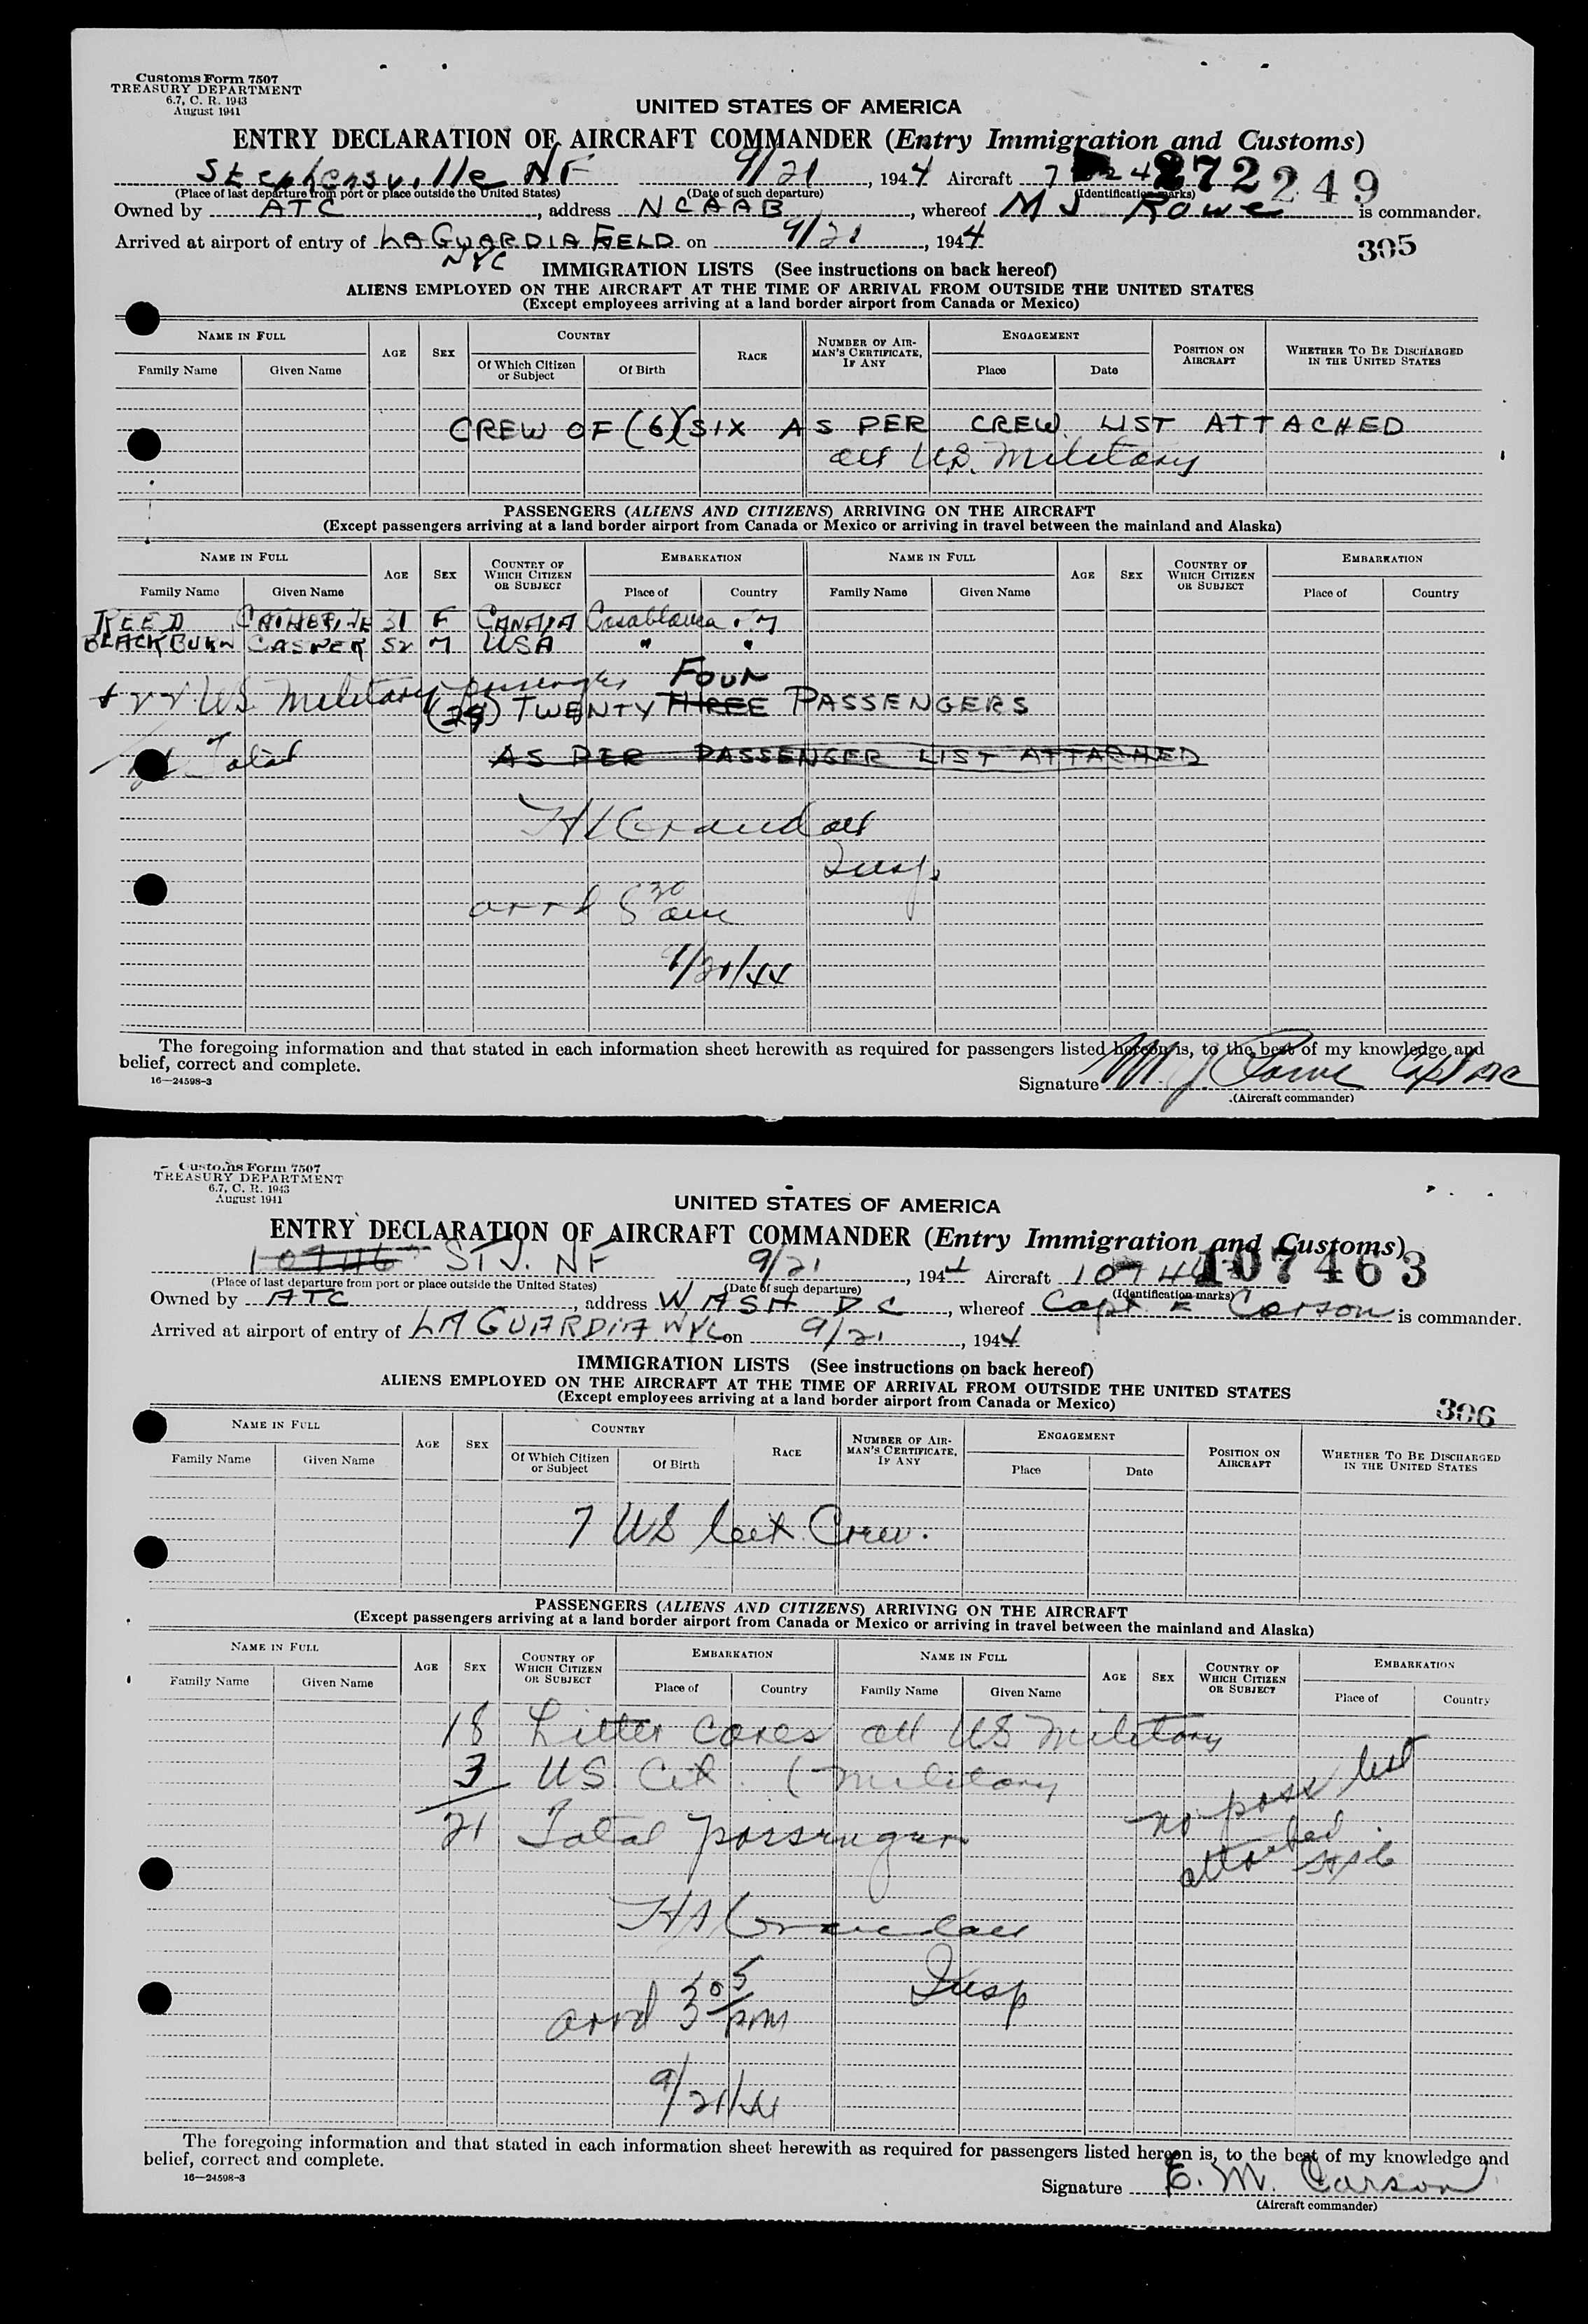 Customs Form 7507
TREASURY DEPARTMENT
6.7, C. R. 1943
August 1941
UNITED STATES OF AMERICA
ENTRY DECLARATION OF AIRCRAFT COMMANDER (Entry Immigration and Customs)
Stephensville NF 9/21, 1944 Aircraft 272249
(Place of last departure from port or place outside the United States) (Date of such departure) (Identification marks)
Owned by ATC, address NCAAB, whereof M J Rowe is commander.
Arrived at airport of entry of LA GUARDIA FIELD on 9/21, 1944
NYC
305
IMMIGRATION LISTS (See instructions on back hereof)
ALIENS EMPLOYED ON THE AIRCRAFT AT THE TIME OF ARRIVAL FROM OUTSIDE THE UNITED STATES
(Except employees arriving at a land border airport from Canada or Mexico)
NAME IN FULL AGE SEX COUNTRY RACE NUMBER OF AIRMAN'S CERTIFICATE, IF ANY ENGAGEMENT POSITION ON AIRCRAFT WHETHER TO BE DISCHARGED IN THE UNITED STATES
Family Name Given Name Of Which Citizen or Subject Of Birth Place Date
CREW OF (6)(SIX AS PER CREW LIST ATTACHED
all U.S. Military
PASSENGERS (ALIENS AND CITIZENS) ARRIVING ON THE AIRCRAFT
(Except passengers arriving at a land border airport from Canada or Mexico or arriving in travel between the mainland and Alaska)
NAME IN FULL AGE SEX COUNTRY OF WHICH CITIZEN OR SUBJECT EMBARKATION NAME IN FULL AGE SEX COUNTRY OF WHICH CITIZEN OR SUBJECT EMBARKATION
Family Name Given Name Place of Country Family Name Given Name Place of Country
REED CATHERINE 31 F CANADA Casablanca
BLACKBURN CASPER 52 M USA " "
+ 22 US Military passengers FOUR
(24) TWENTY THREE PASSENGERS
Total AS PER PASSENGER LIST ATTACHED
H Crandall
Insp.
arrd 8 30 am
9/21/44
The foregoing information and that stated in each information sheet herewith as required for passengers listed hereon is, to the best of my knowledge and
belief, correct and complete.
16—24598-3
Signature M J Rowe Capt AC
(Aircraft commander)
Customs Form 7507
TREASURY DEPARTMENT
6.7, C. R. 1943
August 1941
UNITED STATES OF AMERICA
ENTRY DECLARATION OF AIRCRAFT COMMANDER (Entry Immigration and Customs)
10746 STJ. NF 9/21, 1944 Aircraft 107463
(Place of last departure from port or place outside the United States) (Date of such departure) (Identification marks)
Owned by ATC, address WASH DC, whereof Capt E Carson is commander.
Arrived at airport of entry of LA GUARDIA NYC on 9/21, 1944
IMMIGRATION LISTS (See instructions on back hereof)
ALIENS EMPLOYED ON THE AIRCRAFT AT THE TIME OF ARRIVAL FROM OUTSIDE THE UNITED STATES
(Except employees arriving at a land border airport from Canada or Mexico)
306
NAME IN FULL AGE SEX COUNTRY RACE NUMBER OF AIRMAN'S CERTIFICATE, IF ANY ENGAGEMENT POSITION ON AIRCRAFT WHETHER TO BE DISCHARGED IN THE UNITED STATES
Family Name Given Name Of Which Citizen or Subject Of Birth Place Date
7 US Cit Crew.
PASSENGERS (ALIENS AND CITIZENS) ARRIVING ON THE AIRCRAFT
(Except passengers arriving at a land border airport from Canada or Mexico or arriving in travel between the mainland and Alaska)
NAME IN FULL AGE SEX COUNTRY OF WHICH CITIZEN OR SUBJECT EMBARKATION NAME IN FULL AGE SEX COUNTRY OF WHICH CITIZEN OR SUBJECT EMBARKATION
Family Name Given Name Place of Country Family Name Given Name Place of Country
18 Litter Cases all US Military
3 US Cit. (Military
21 Total passengers
no pass list
attached
H Crandall
Insp
arrd 3 05 pm
9/21/44
The foregoing information and that stated in each information sheet herewith as required for passengers listed hereon is, to the best of my knowledge and
belief, correct and complete.
16—24598-3
Signature E. M. Carson
(Aircraft commander)